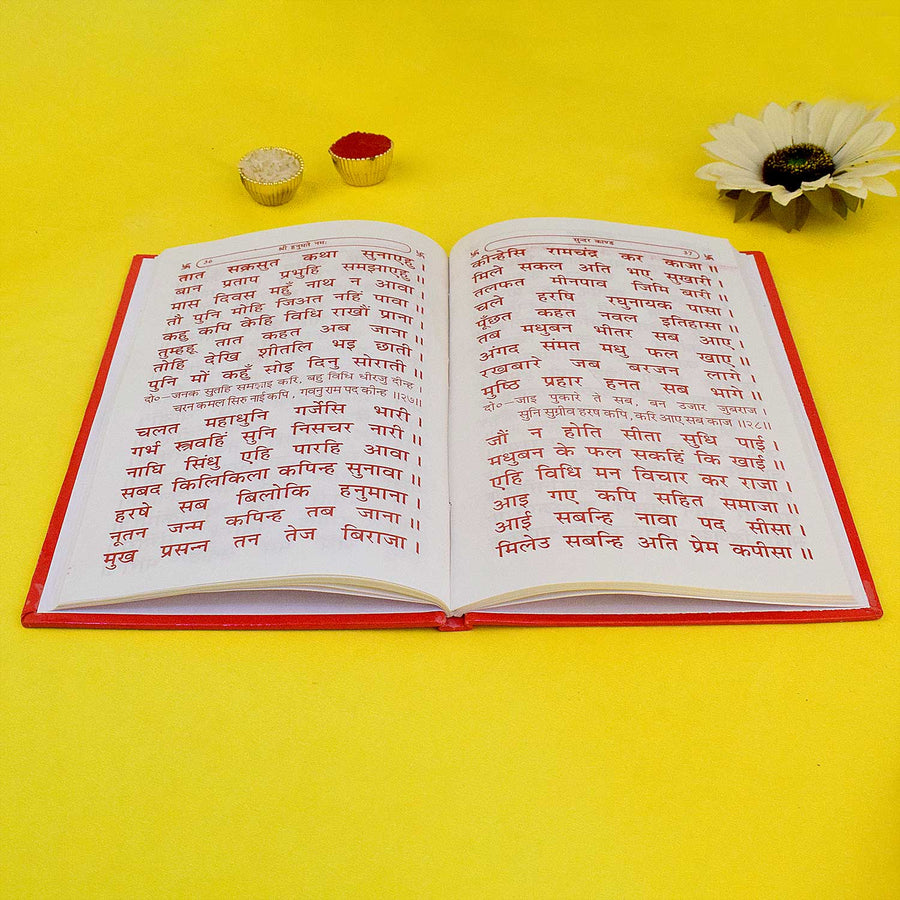 36 श्री हनुमते नमः
तात सक्रसुत कथा सुनाएहु ।
बान प्रताप प्रभुहि समझाएहु ॥
मास दिवस महुँ नाथ न आवा ।
तौ पुनि मोहि जिअत नहिं पावा ॥
कहु कपि केहि विधि राखौं प्राना ।
तुम्हहू तात कहत अब जाना ॥
तोहि देखि शीतलि भइ छाती ।
पुनि मों कहुँ सोइ दिनु सोराती ॥
दो०—जनक सुतहि समझाइ करि, बहु विधि धीरजु दीन्ह ।
चरन कमल सिरु नाई कपि, गवनु राम पद कीन्ह ॥२७॥
चलत महाधुनि गर्जेसि भारी ।
गर्भ स्त्रवहिं सुनि निसचर नारी ॥
नाधि सिंधु एहि पारहि आवा ।
सबद किलिकिला कपिन्ह सुनावा ॥
हरषे सब बिलोकि हनुमाना ।
नूतन जन्म कपिन्ह तब जाना ॥
मुख प्रसन्न तन तेज बिराजा ।
सुन्दर काण्ड 37
कीन्हेसि रामचंद्र कर काजा ॥
मिले सकल अति भए सुखारी ।
तलफत मीनपाव जिमि बारी ॥
चले हरषि रघुनायक पासा ।
पूँछत कहत नवल इतिहासा ॥
तब मधुबन भीतर सब आए ।
अंगद संमत मधु फल खाए ॥
रखबारे जब बरजन लागे ।
मुष्ठि प्रहार हनत सब भागे ॥
दो०—जाइ पुकारे ते सब, बन उजार जुबराज ।
सुनि सुग्रीव हरष कपि, करि आए सब काज ॥२८॥
जौं न होति सीता सुधि पाई ।
मधुबन के फल सकहिं कि खाई ॥
एहि विधि मन विचार कर राजा ।
आइ गए कपि सहित समाजा ॥
आई सबन्हि नावा पद सीसा ।
मिलेउ सबन्हि अति प्रेम कपीसा ॥